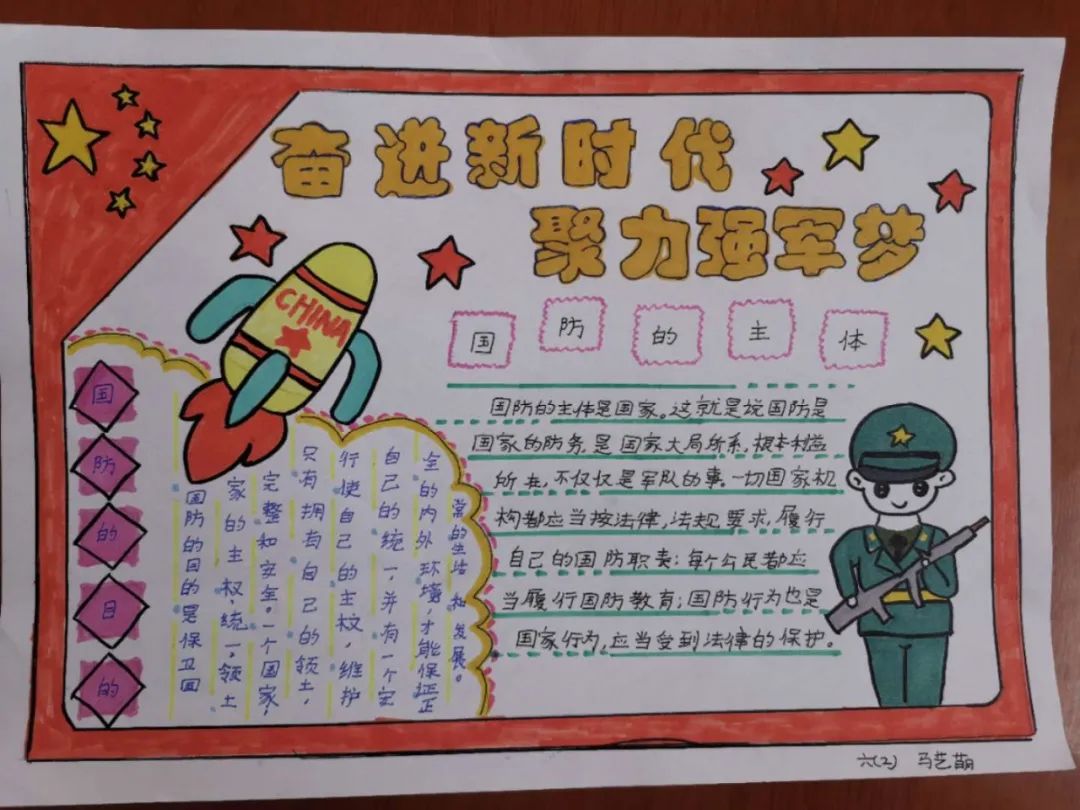 奋进新时代
聚力强军梦
CHINA
国防的主体
国防的主体是国家。这就是说国防是
国家的防务,是国家大局所系,根本利益
所在,不仅仅是军队的事。一切国家机
构都应当按法律,法规要求,履行
自己的国防职责;每个公民都应
当履行国防教育;国防行为也是
国家行为,应当受到法律的保护。
国防的目的
国防的目的是保卫国
家的主权,统一,领土
完整和安全。一个国家,
只有拥有自己的领土,
行使自己的主权,维护
自己的统一,并有一个安
全的内外环境,才能保证正
常的生活和发展。
六(2) 马艺萌